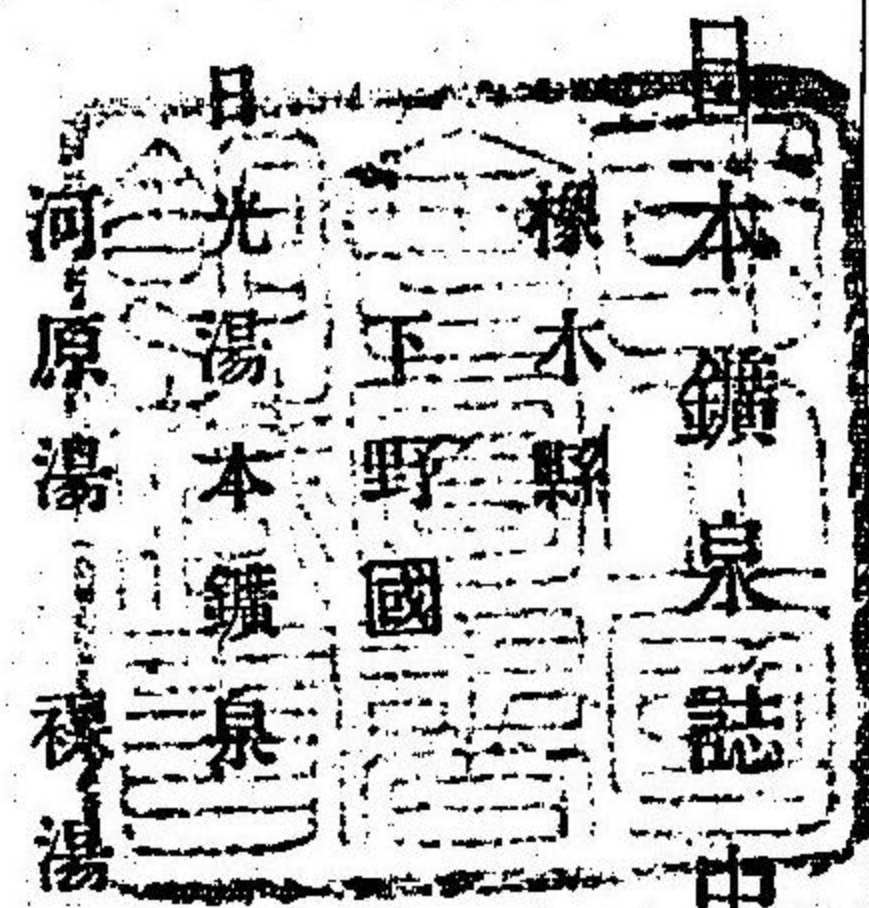 日本鑛泉誌中
橡木縣
下野國
日光湯本鑛泉
河原湯 湯